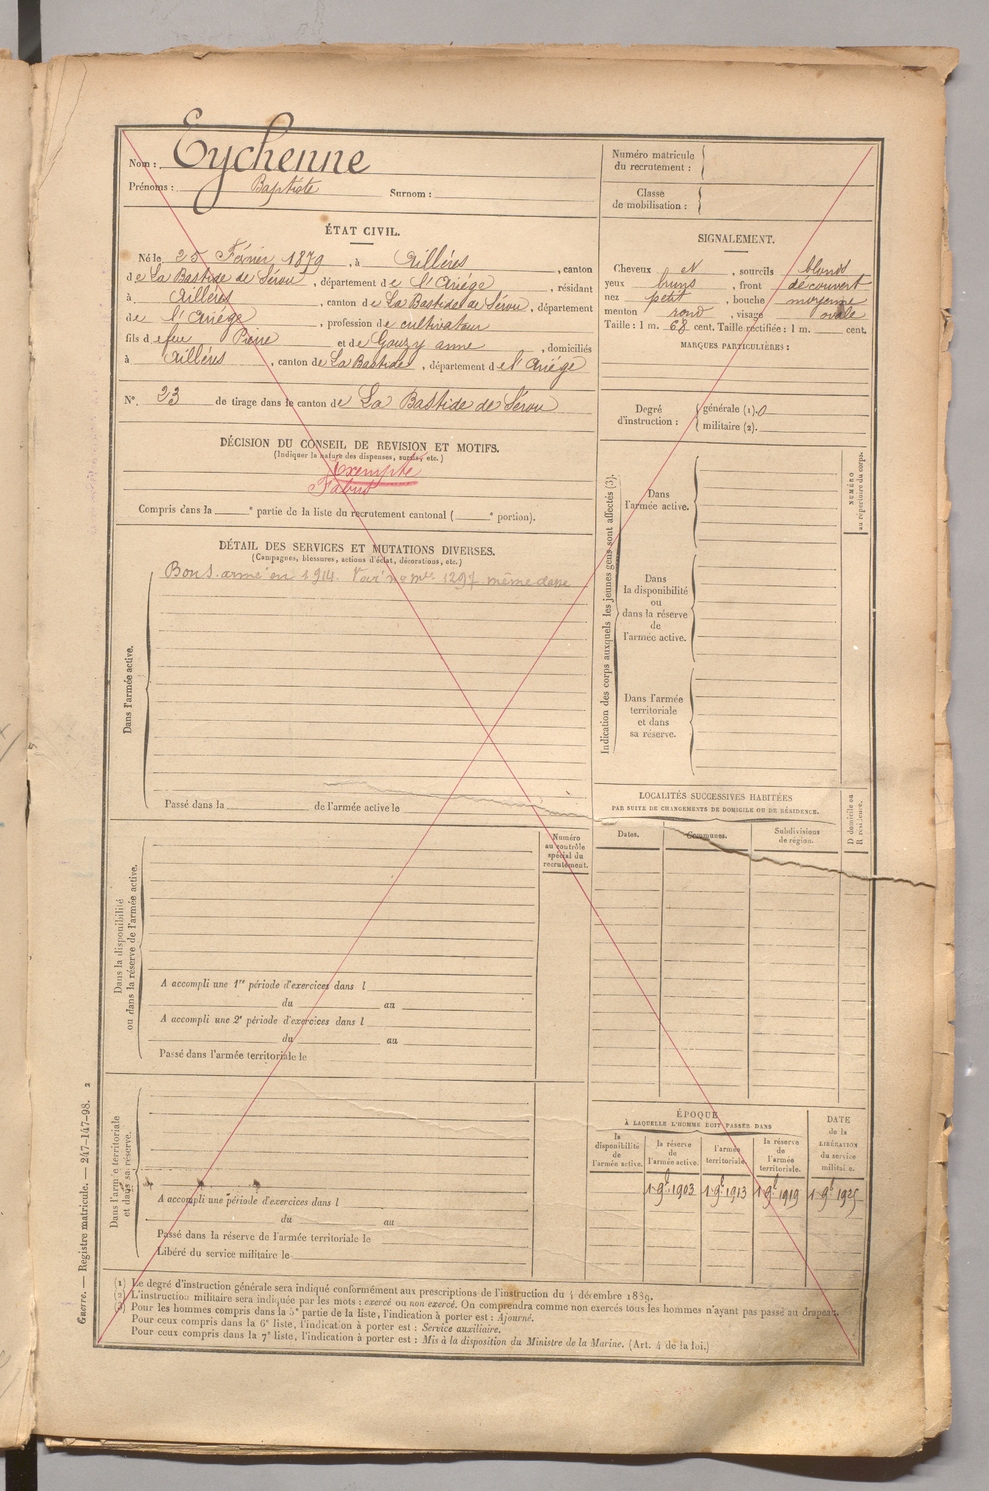 Nom : Eychenne
Prénoms : Baptiste Surnom :
ÉTAT CIVIL.
Né le 25 Février 1879, à Aillères, canton
de La Bastide de Sérou, département de l'Ariége, résidant
à Aillères, canton de La Bastide de Sérou, département
de l'Ariége, profession de cultivateur
fils de feu Pierre et de Gouzy anne, domiciliés
à Aillères, canton de La Bastide, département de l'Ariége
N°. 23 de tirage dans le canton de La Bastide de Sérou
DÉCISION DU CONSEIL DE REVISION ET MOTIFS.
(Indiquer la nature des dispenses, sursis, etc.)
Exempté
Compris dans la e partie de la liste du recrutement cantonal ( e portion).
DÉTAIL DES SERVICES ET MUTATIONS DIVERSES.
(Campagnes, blessures, actions d'éclat, décorations, etc.)
Bon S. armé en 1914. Voir no mle 1297 même classe
Dans l'armée active.
Passé dans la de l'armée active le
Numéro
au contrôle
spécial du
recrutement.
Dans la disponibilité
ou dans la réserve de l'armée active.
A accompli une 1re période d'exercices dans l
du au
A accompli une 2e période d'exercices dans l
du au
Passé dans l'armée territoriale le
Dans l'armée territoriale
et dans sa réserve.
A accompli une période d'exercices dans l
du au
Passé dans la réserve de l'armée territoriale le
Libéré du service militaire le
Numéro matricule
du recrutement :
Classe
de mobilisation :
SIGNALEMENT.
Cheveux et, sourcils blonds
yeux bruns, front découvert
nez petit, bouche moyenne
menton rond, visage ovale
Taille : 1 m. 68 cent. Taille rectifiée : 1 m. cent.
MARQUES PARTICULIÈRES :
Degré
d'instruction :
générale (1). 0
militaire (2).
Indication des corps auxquels les jeunes gens sont affectés (3).
Dans
l'armée active.
NUMÉRO
au répertoire du corps.
Dans
la disponibilité
ou
dans la réserve
de
l'armée active.
Dans l'armée
territoriale
et dans
sa réserve.
LOCALITÉS SUCCESSIVES HABITÉES
PAR SUITE DE CHANGEMENTS DE DOMICILE OU DE RÉSIDENCE.
Dates. Communes. Subdivisions
de région.
D domicile ou
R résidence.
ÉPOQUE
À LAQUELLE L'HOMME DOIT PASSER DANS
la
disponibilité
de
l'armée active.
la réserve
de
l'armée active.
l'armée
territoriale.
la réserve
de
l'armée
territoriale.
DATE
de la
LIBÉRATION
du service
militaire.
1 9e 1903 1 9e 1913 1 9e 1919 1 9e 1925
(1) Le degré d'instruction générale sera indiqué conformément aux prescriptions de l'instruction du 4 décembre 1889.
(2) L'instruction militaire sera indiquée par les mots : exercé ou non exercé. On comprendra comme non exercés tous les hommes n'ayant pas passé au drapeau.
(3) Pour les hommes compris dans la 5e partie de la liste, l'indication à porter est : Ajourné.
Pour ceux compris dans la 6e liste, l'indication à porter est : Service auxiliaire.
Pour ceux compris dans la 7e liste, l'indication à porter est : Mis à la disposition du Ministre de la Marine. (Art. 4 de la loi.)
Guerre. — Registre matricule. — 247-147-98. 2